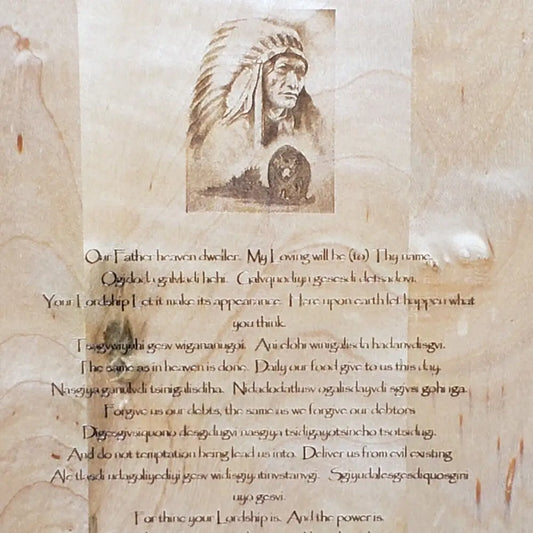 Our Father heaven dweller. My Loving will be (to) Thy name.
Ogidodu galvladi hehi. Galvquodiyu gesesdi detsadovi.
Your Lordship Let it make its appearance. Here upon earth let happen what
you think.
Tsagvwiyuhi gesv wigananugoi. Ani elohi winigalisda hadanvdisgvi.
The same as in heaven is done. Daily our food give to us this day.
Nasgiya ganulvdi tsinigalisdiha. Nidadodatlusv ogalisdayvdi sgivsi gohi iga.
Forgive us our debts, the same as we forgive our debtors
Digesgivsiquono desgidugvi nasgiya tsidigayotsineho tsotsidugi.
And do not temptation being lead us into. Deliver us from evil existing
Ale tlesdi udagoliyediyi gesv widisgiyatinvstanvgi. Sgiyudalesgesdiquosgini
uyo gesvi.
For thine your Lordship is. And the power is.